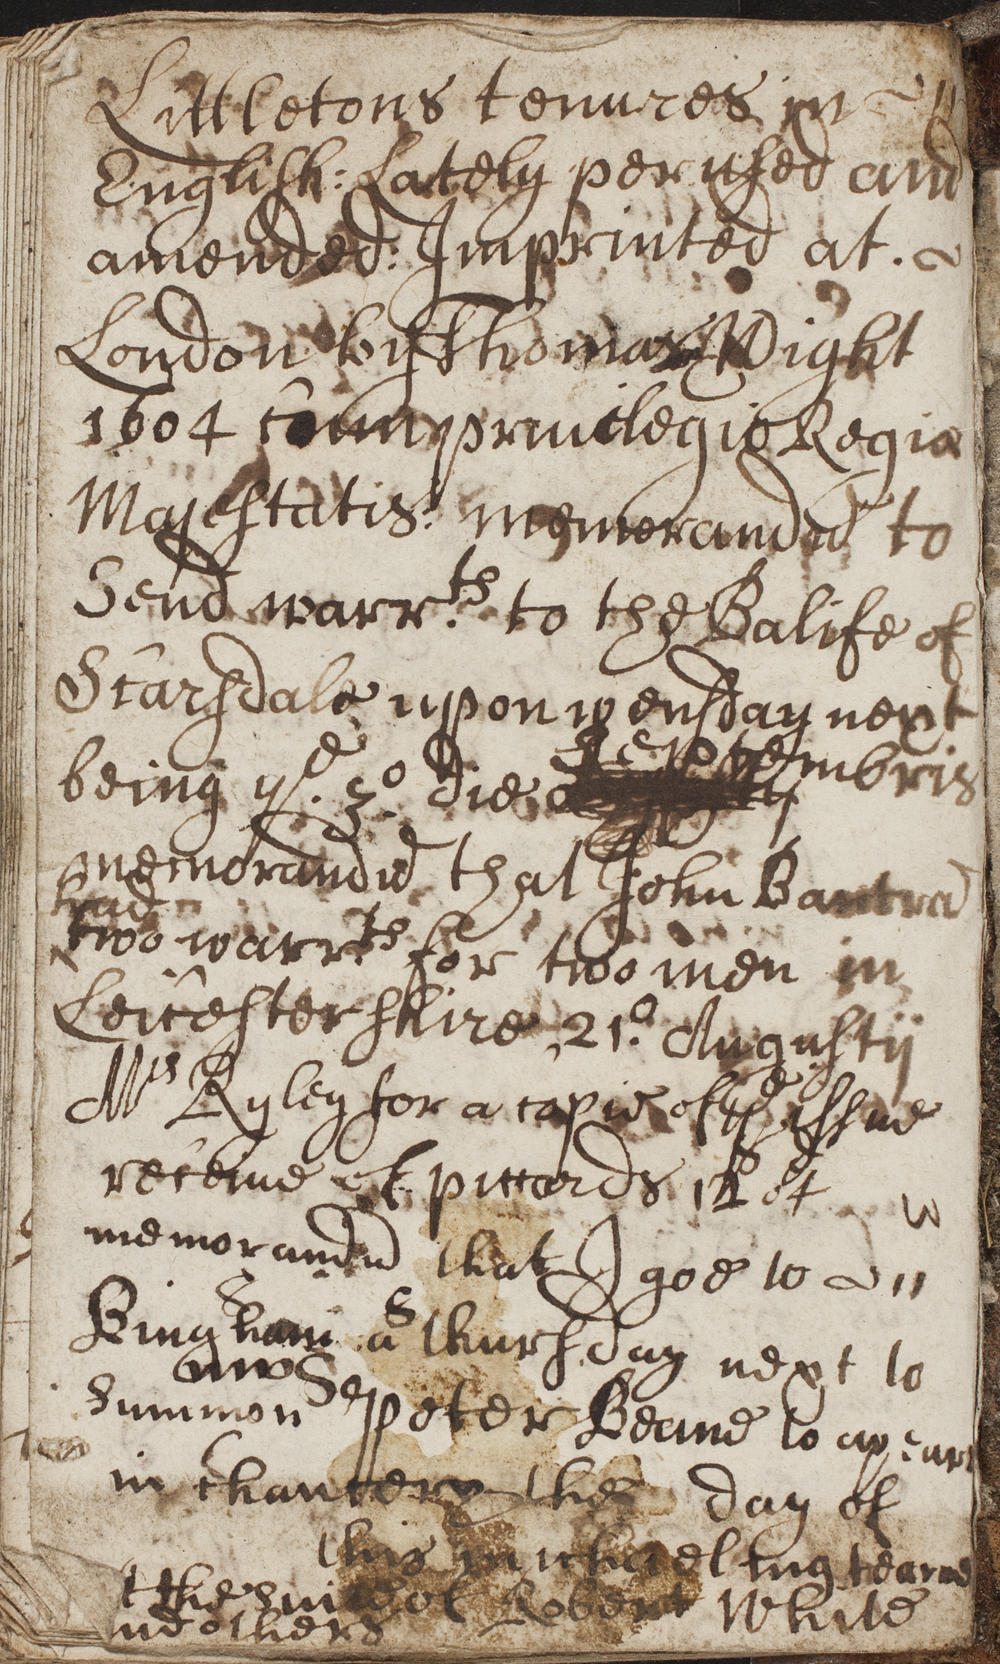 Littletons tenures in
English: Lately perused and
amended: Imprinted at.
London by Thomas Wight
1604 Cum privilegio Regia
Majestatis: memorandd to
Send warr.ts to the Balife of
Scarsdale upon wensday next
being ye. 3o. die Septembris
memorandd that John Bantra
had
two warr.ts for two men in
Leicestershire 21o. Augustij
Mrs Ryley for a copie of ye issue
receive of piccards
memorandd that I goe to
Bingham a thursday next to
summon Peter Beane to apeare
in Chancery the day of
this michaelmas tearme
t the suit of Robert White
nd others